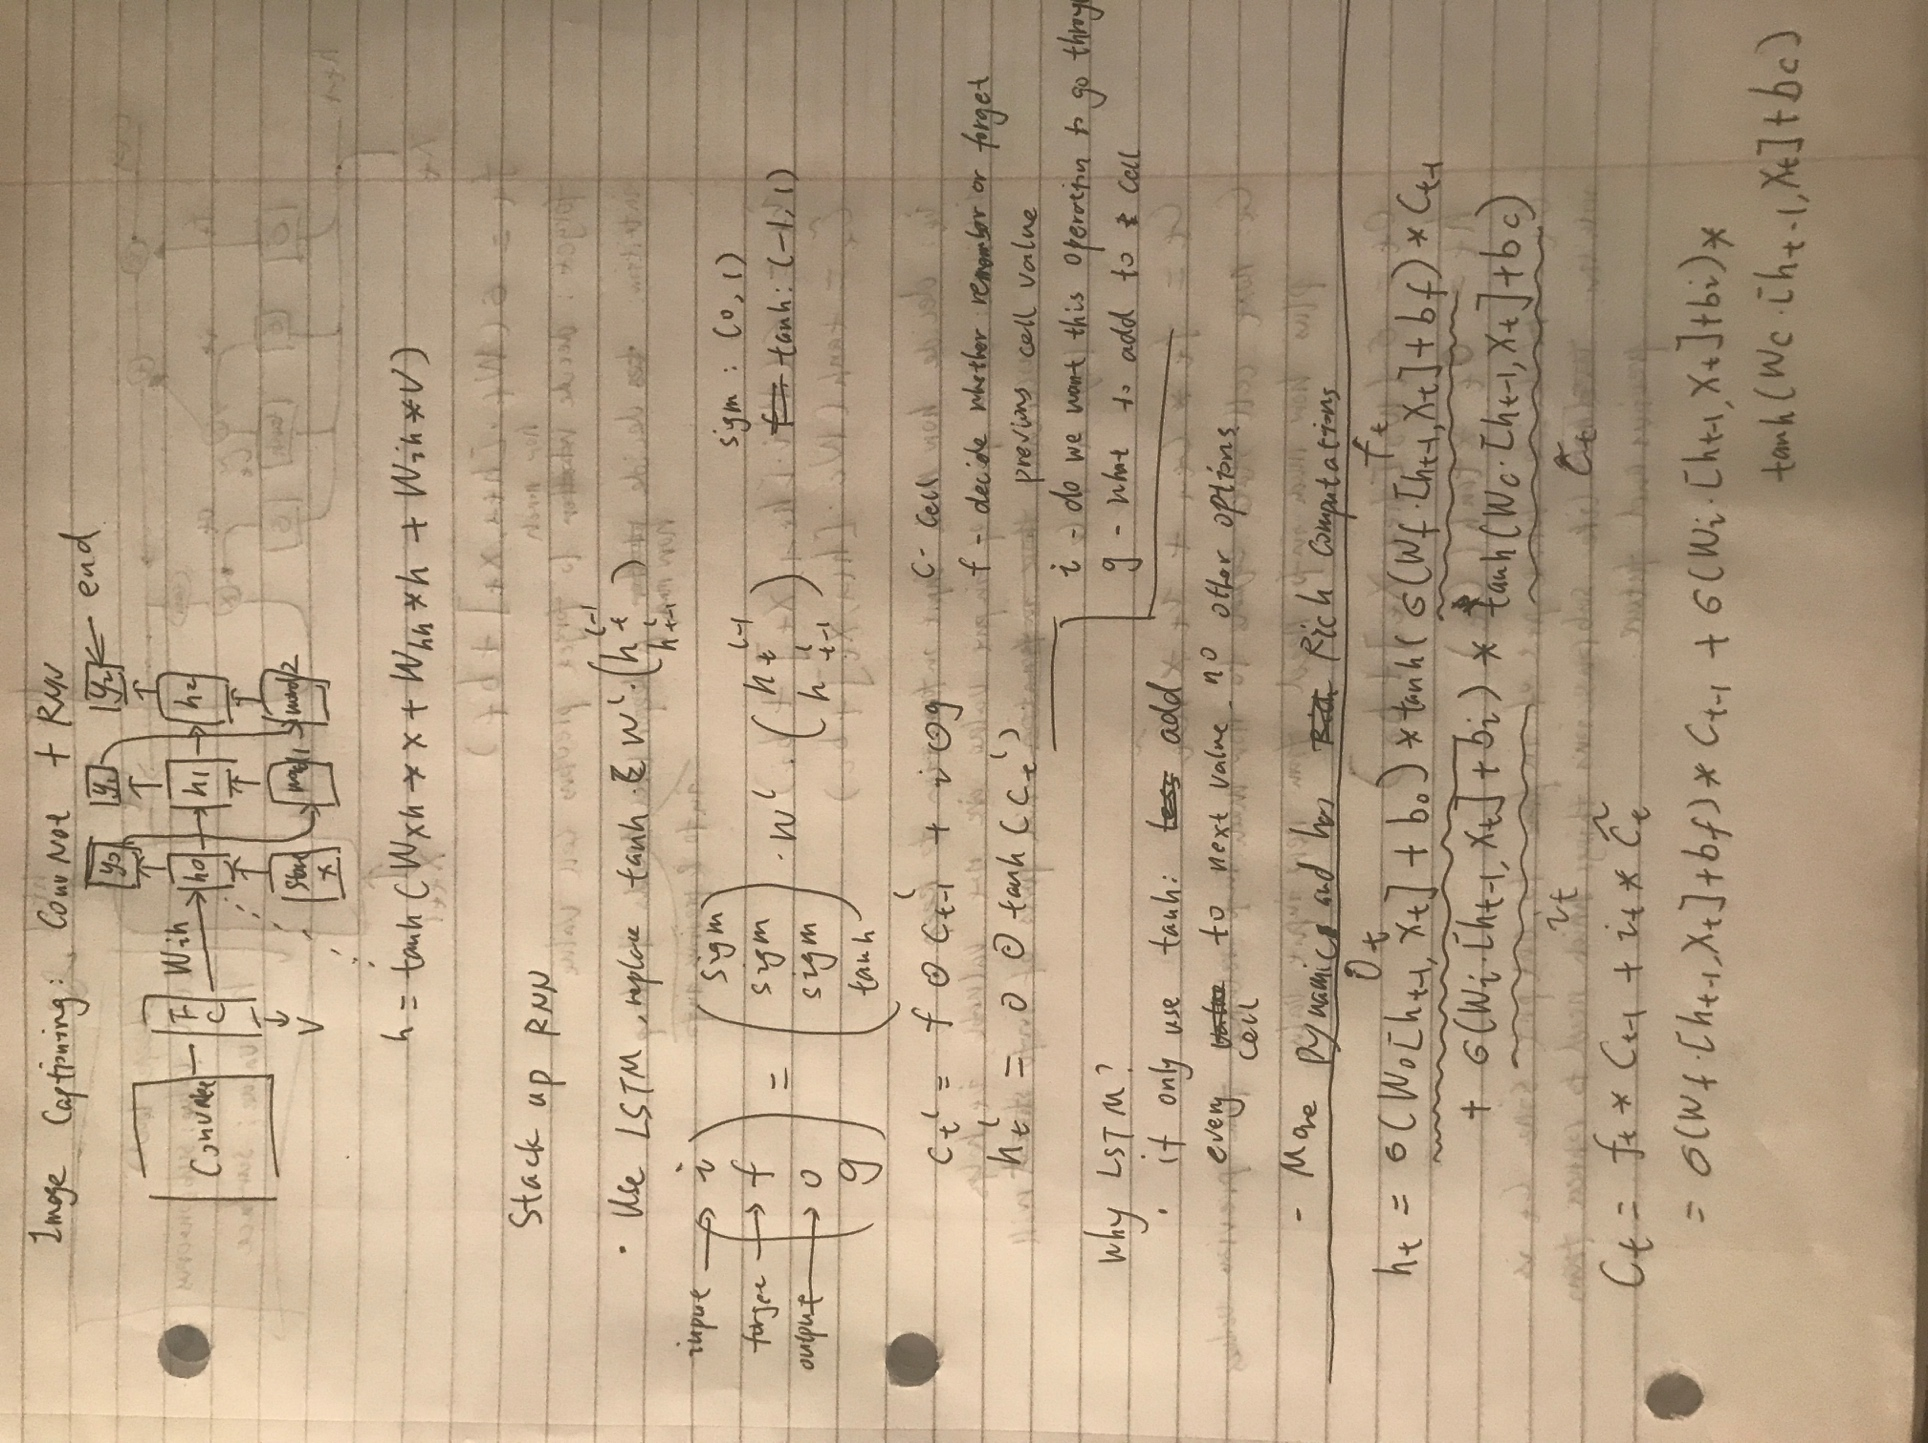 Image Captioning: Conv Net + RNN
y0 y1 y2 ← end
ConvNet — FC Wih → h0 → h1 → h2
V
Star x word1 word2
h = tanh(Wxh * x + Whh * h + Wih * V)
Stack up RNN
· Use LSTM, replace tanh. W^l · (h_t^{l-1} h_{t-1}^l)
input → i
forget → f
output → o
g
= (sigm sigm sigm tanh) · W^l · (h_t^{l-1} h_{t-1}^l)
sigm : (0, 1)
tanh: (-1, 1)
c_t^l = f ⊙ c_{t-1}^l + i ⊙ g
h_t^l = o ⊙ tanh(c_t^l)
c - cell
f - decide whether remember or forget
previous cell value
i - do we want this operation to go throu
g - what to add to cell
Why LSTM?
· if only use tanh: add
every cell to next value. no other options
- More Dynamics and has Rich Computations
O_t f_t
h_t = σ(Wo[h_{t-1}, X_t] + bo) * tanh(σ(Wf·[h_{t-1}, X_t] + bf) * C_{t-1}
+ σ(Wi·[h_{t-1}, X_t] + bi) * tanh(Wc·[h_{t-1}, X_t] + bc)
i_t C̃_t
C_t = f_t * C_{t-1} + i_t * C̃_t
= σ(Wf·[h_{t-1}, X_t] + bf) * C_{t-1} + σ(Wi·[h_{t-1}, X_t] + bi) *
tanh(Wc·[h_{t-1}, X_t] + bc)